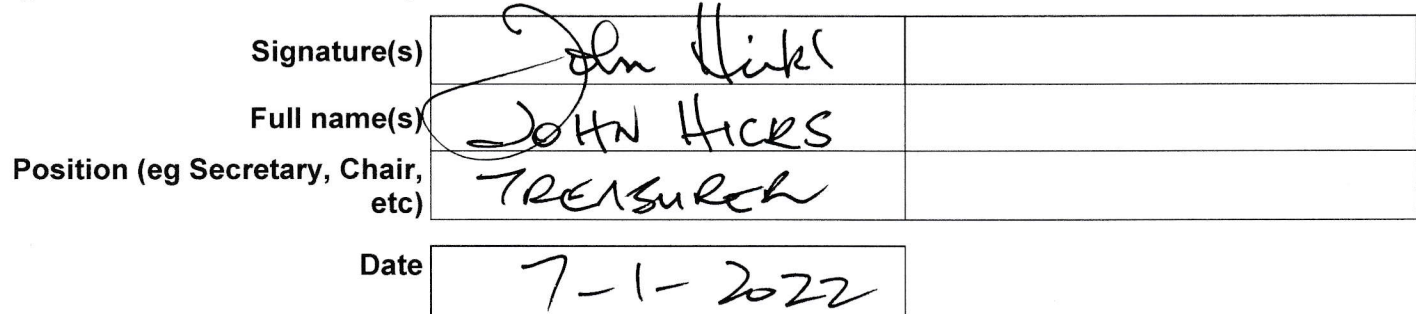 Signature(s) John Hicks
Full name(s) JOHN HICKS
Position (eg Secretary, Chair, etc) TREASURER
Date 7-1-2022